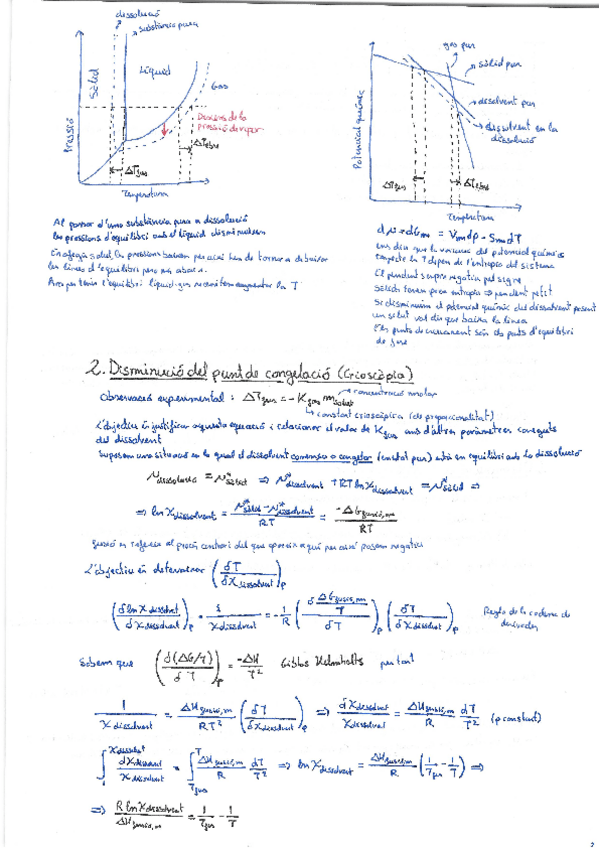 dissolució
substància pura
Sòlid
Líquid
Gas
Descens de la
pressió de vapor
Pressió
ΔTfus
ΔTebu
Temperatura
gas pur
sòlid pur
dissolvent pur
dissolvent en la
dissolució
Potencial químic
ΔTfus
ΔTebu
Temperatura
Al passar d'una substància pura a dissolució
les pressions d'equilibri amb el líquid disminueixen
dμ = dGm = Vmdp - SmdT
ens diu que la variació del potencial químic
respecte la T depèn de l'entropia del sistema
El pendent sempre negatiu pel signe
Sòlids tenen poca entropia ⇒ pendent petit
Si disminuïm el potencial químic del dissolvent posant
un solut vol dir que baixa la línea
Els punts de creuament són els punts d'equilibri
de fase
2. Disminució del punt de congelació (Crioscòpia)
Observació experimental: ΔTfus = -Kfus msolut
concentració molar
constant crioscòpica (de proporcionalitat)
L'objectiu és justificar aquesta equació i relacionar el valor de Kfus amb d'altres paràmetres coneguts
del dissolvent
Suposem una situació en la qual el dissolvent comença a congelar (en estat pur) està en equilibri amb la dissolució
μdissolució = μ*sòlid ⇒ μ*dissolvent + RT ln Xdissolvent = μ*sòlid ⇒
⇒ ln Xdissolvent = (μ*sòlid - μ*dissolvent)/RT = -ΔGfusió,m/RT
fusió es refereix al procés contrari del que apareix aquí per això posem negatiu
L'objectiu és determinar (δT/δXdissolvent)p
(δ ln Xdissolvent/δXdissolvent)p = 1/Xdissolvent = -1/R (δ(ΔGfusió,m/T)/δT)p (δT/δXdissolvent)p
Regla de la cadena de
derivades
Sabem que (δ(ΔG/T)/δT)p = -ΔH/T² Gibbs Helmholtz per tant
1/Xdissolvent = ΔHfusió,m/RT² (δT/δXdissolvent)p ⇒ dXdissolvent/Xdissolvent = ΔHfusió,m/R dT/T² (p constant)
∫ dXdissolvent/Xdissolvent = ∫ ΔHfusió,m/R dT/T² ⇒ ln Xdissolvent = ΔHfusió,m/R (1/Tfus - 1/T) ⇒
⇒ R ln Xdissolvent/ΔHfusió,m = 1/Tfus - 1/T